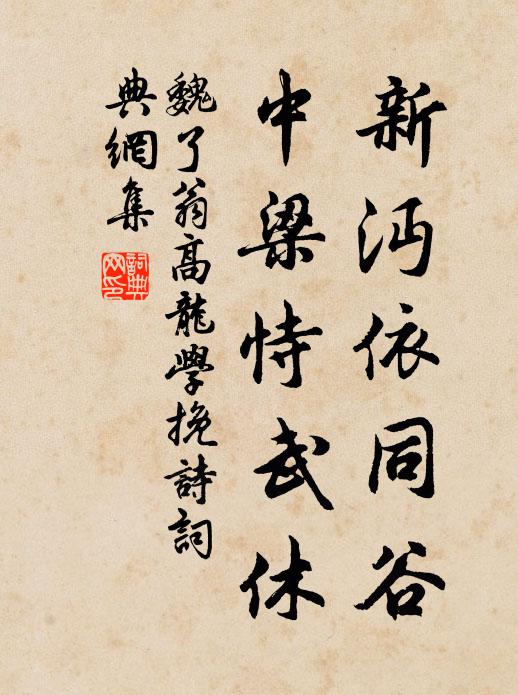 新沔依同谷
中梁恃武休
魏了翁高龍學挽詩詞
典網集
詞典網印